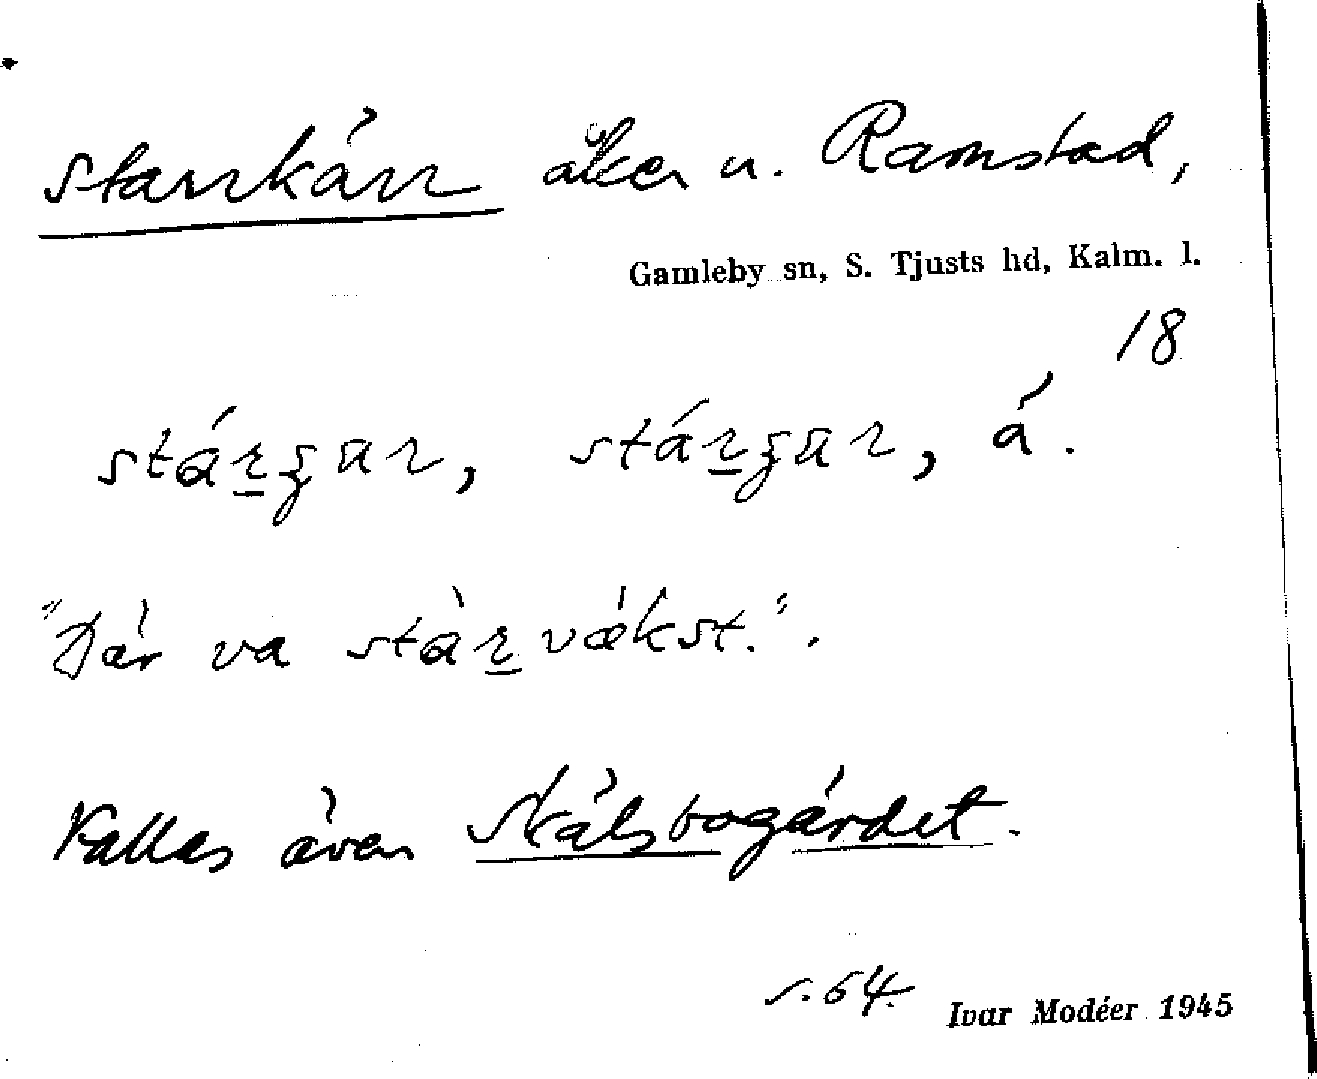 Starrkärr åker u. Ramstad,
Gamleby sn, S. Tjusts hd, Kalm. l.
18
stárʒar, stárʒar, å.
"Där va stàrvákst.".
Kallas även Skälsbogärdet.
s. 64. Ivar Modéer 1945